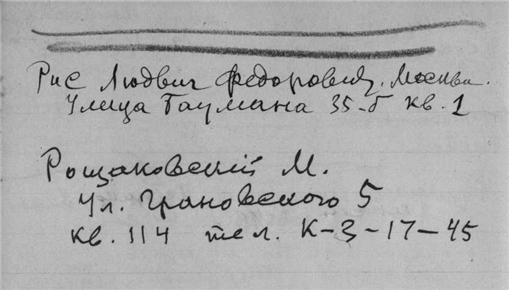 Рис Людвиг Федорович. Москва.
Улица Баумана 35-б кв. 1
Рощаковский М.
Ул. Грановского 5
кв. 114 тел. К-3-17-45